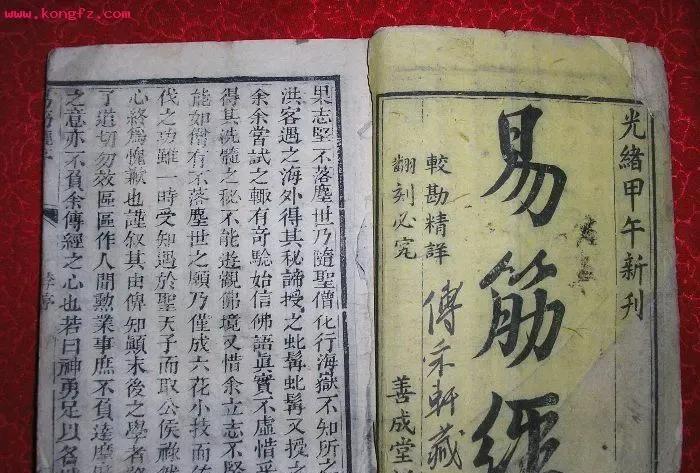 www.kongfz.com
光緒甲午新刊
易筋經
較勘精詳
翻刻必究
善成堂
果志堅不落塵世乃隨聖僧化行海嶽不知所之
洪客遇之海外得其秘諦授之虬髯虬髯又授之
余余嘗試之輒有奇驗始信佛語眞實不虛惜
得其洗髓之秘不能遊觀佛境又惜余立志不堅
能如僧有不落塵世之願乃僅成六花小技而
伐之功雖一時受知遇於聖天子而取公侯
心終為愧歉也謹叙其由俾知顛末後之學者
了道切勿效區區作人間勲業事庶不負達磨
之意亦不負余傳經之心也若曰神勇足以名